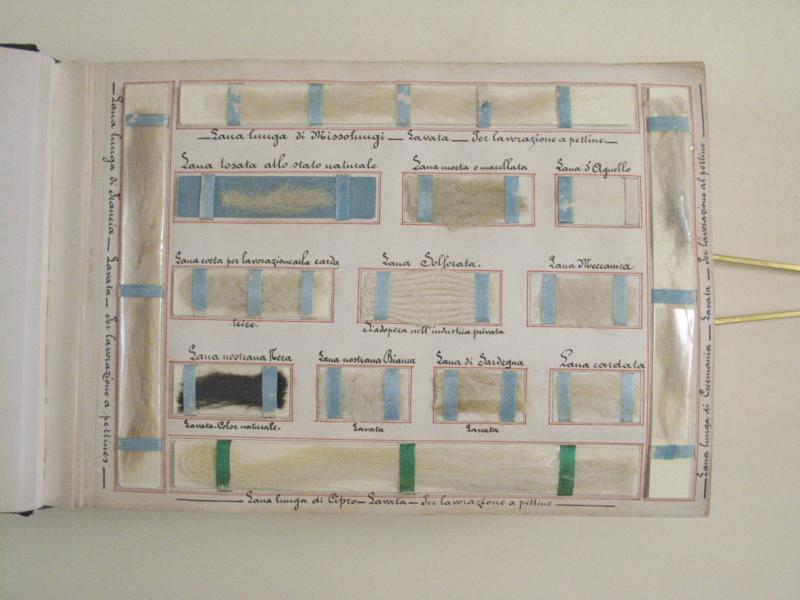 Lana lunga di Francia — Lavata — Per lavorazione a pettine
Lana lunga di Missolungi — Lavata — Per lavorazione a pettine
Lana tosata allo stato naturale
Lana morta o macellata
Lana d'Agnello
Lana corta per lavorazione alla carda
Lana Solforata.
Lana Meccanica
S'adopera nell'industria privata
Lana nostrana Nera
Lana nostrana Bianca
Lana di Sardegna
Lana cardata
Lavata. Color naturale.
Lavata
Lavata
Lana lunga di Cipro — Lavata — Per lavorazione a pettine
Lana lunga di Germania — Lavata — Per lavorazione al pettine